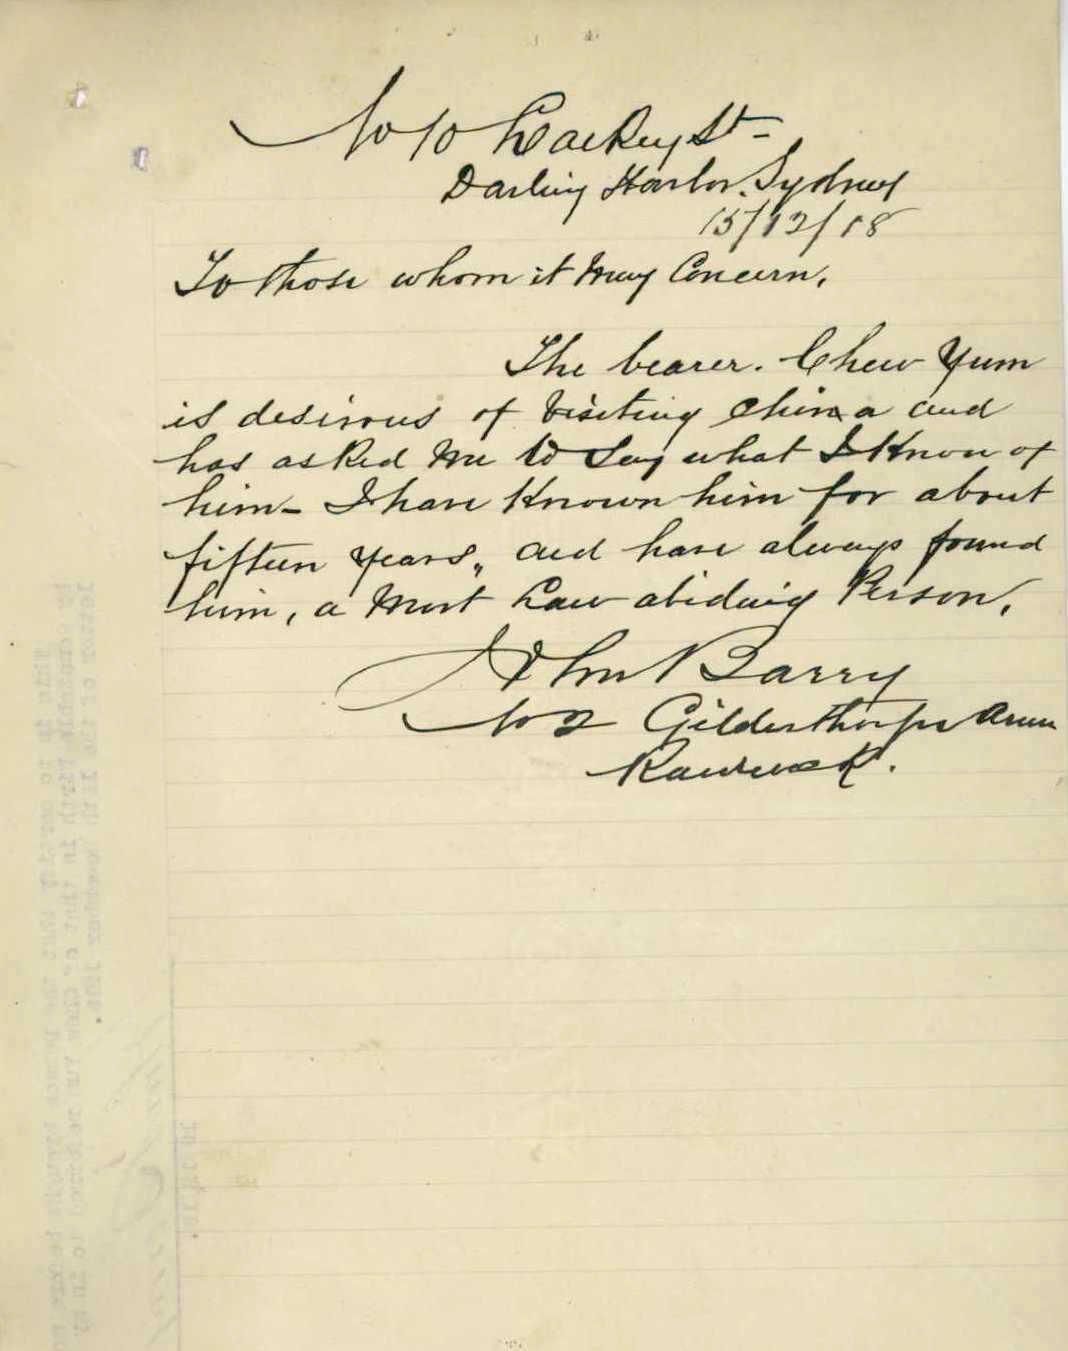 No 10 Lackey St -
Darling Harbor. Sydney
15/12/18
To those whom it May Concern,
The bearer. Chew Yum
is desirous of visiting China and
has asked me to Say what I Know of
him - I have Known him for about
fifteen years, and have always found
him, a Most Law abiding Person.
John Barry
No 2 Gilderthorpe Avenue
Randwick.